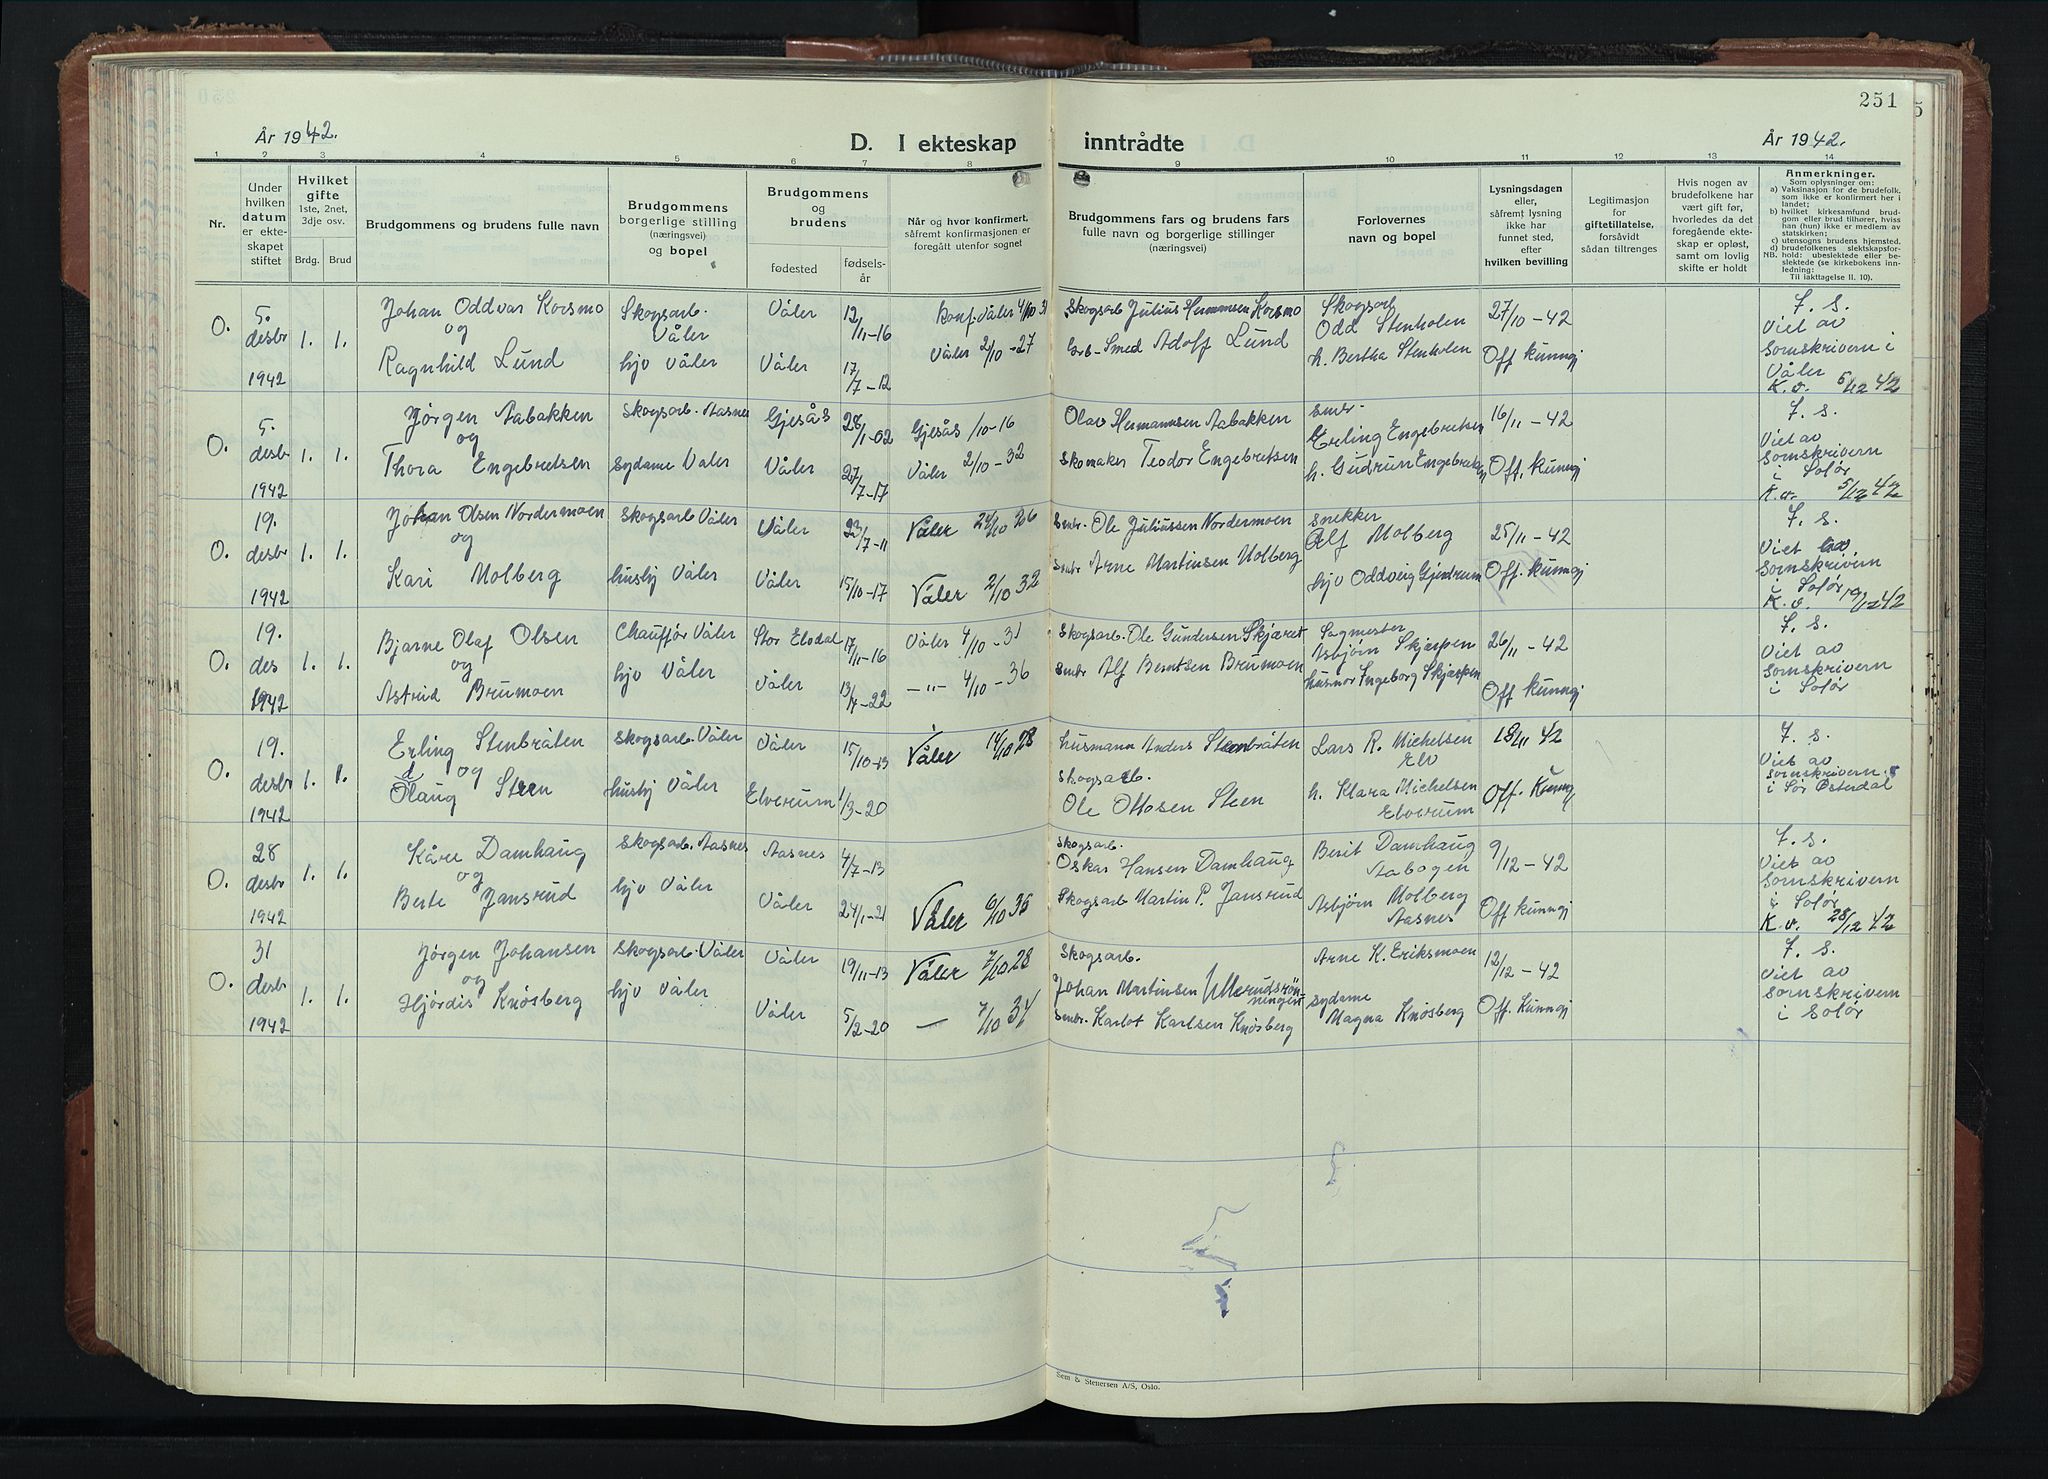 251
År 1942.
D. I ekteskap inntrådte
År 1942.
1 2 3 4 5 6 7 8 9 10 11 12 13 14
Nr.
Under hvilken datum er ekteskapet stiftet
Hvilket gifte
1ste, 2net, 3dje osv.
Brdg. Brud
Brudgommens og brudens fulle navn
Brudgommens borgerlige stilling (næringsvei) og bopel
Brudgommens og brudens
fødested
fødselsår
Når og hvor konfirmert, såfremt konfirmasjonen er foregått utenfor sognet
Brudgommens fars og brudens fars fulle navn og borgerlige stillinger (næringsvei)
Forlovernes navn og bopel
Lysningsdagen eller, såfremt lysning ikke har funnet sted, efter hvilken bevilling
Legitimasjon for giftetillatelse, forsåvidt sådan tiltrenges
Hvis nogen av brudefolkene har vært gift før, hvorledes da det foregående ekteskap er opløst, samt om lovlig skifte er holdt
Anmerkninger.
Som oplysninger om:
a) Vaksinasjon for de brudefolk, som ikke er konfirmert her i landet;
b) hvilket kirkesamfund brudgom eller brud tilhører, hviss han (hun) ikke er medlem av statskirken;
c) utensogns brudens hjemsted.
d) brudefolkenes slektskapsforhold: ubeslektede eller beslektede (se kirkebokens innledning:
NB. Til iakttagelse II. 10).
O. 5. desbr 1942 1. 1.
Johan Oddvar Korsmo og Ragnhild Lund
Skogsarb. Våler
hjv Våler
Våler 12/11-16
Våler 17/7-12
konf. Våler 4/10 31
Våler 2/10-27
Skogsarb Julius Hermansen Korsmo
Grb-Smed Adolf Lund
Skogsarb Odd Stenholen
h. Bertha Stenholen
27/10-42
Off kunngj
F. S.
Viet av
Sornskrivern i
Våler
K.v. 5/12 42
O. 5. desbr 1942 1. 1.
Jørgen Aabakken og Thora Engebretsen
Skogsarb. Aasnes
Sydame Våler
Gjesås 28/1-02
Våler 27/7-17
Gjesås /10-16
Våler 2/10-32
Olav Hermannsen Aabakken
Skomaker Teodor Engebretsen
Smbr- Erling Engebretsen
h. Gudrun Engebretsen
16/11-42
Off. kunngj
F. S.
Viet av
sornskrivern
i Solør
K.v. 5/12 42
O. 19. desbr 1942 1. 1.
Johan Olsen Nordermoen og Kari Molberg
Skogsarb Våler
husbj Våler
Våler 23/7-11
Våler 15/10-17
Våler 24/10 26
Våler 2/10 32
Smbr. Ole Juliussen Nordermoen
Smbr Arne Martinsen Molberg
Snekker Alf Molberg
hjv Oddveig Gjendrum
25/11-42
Off. kunngj
F. S.
Viet av
Sornskrivern
i Solør
K.v. 19/12 42
O. 19. des 1942 1. 1.
Bjarne Olaf Olsen og Astrid Brumoen
Chauffør Våler
hjv Våler
Stor Elvdal 17/11-16
Våler 13/7-22
Våler 4/10-31
—"— 4/10-36
Skogsarb. Ole Gundersen Skjæret
Smbr Alf Berntsen Brumoen
Sagmester Asbjørn Skjæppen
husmor Ingeborg Skjæppen
26/11-42
Off kunngj
F. S.
Viet av
Sornskrivern
i Solør
O. 19. desbr 1942 1. 1.
Erling Stenbråten og Olaug Steen
Skogsarb. Våler
husbj Våler
Våler 15/10-13
Elverum 1/3-20
Våler 14/10 28
husmann Anders Stenbråten
Skogsarb. Ole Ottosen Steen
Lars R. Michelsen Elv
h. Klara Michelsen Elverum
18/11 42
Off. Kunngj
F. S.
Viet av
sornskrivern
i Sør Østerdal
O. 28 desbr 1942 1. 1.
Kåre Damhaug og Berte Jansrud
Skogsarb. Aasnes
hjv Våler
Aasnes 4/7-13
Våler 24/1-21
Våler 6/10 35
Skogsarb. Oskar Hansen Damhaug
Skogsarb Martin P. Jansrud
Berit Damhaug Aabogen
Asbjørn Molberg Aasnes
9/12-42
Off kunngj
F. S.
Viet av
Sornskrivern
i Solør
K.v. 28/12 42
O. 31 desbr 1942 1. 1.
Jørgen Johansen og Hjørdis Knøsberg
Skogsarb. Våler
hjv Våler
Våler 19/11-13
Våler 5/2-20
Våler 7/10 28
— 7/10 34
Skogsarb. Johan Martinsen
Smbr. Karlot Karlsen Knøsberg
Arne K. Eriksmoen
Sydame Magna Knøsberg
12/12-42
Off. Kunngj
F. S.
Viet av
Sornskrivern
i Solør
Sem & Stenersen A/S, Oslo.